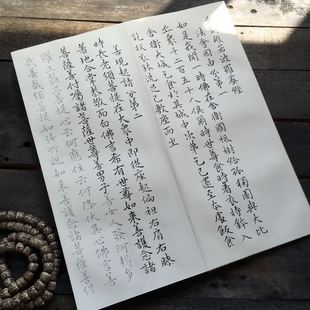 般若波羅蜜經
法會因由分第一
如是我聞一時佛在舍衛國祇樹給孤獨園與大比
丘眾千二百五十人俱爾時世尊食時著衣持鉢入
舍衛大城乞食於其城中次第乞已還至本處飯食
訖收衣鉢洗足已敷座而坐
善現起請分第二
時長老須菩提在大眾中即從座起偏袒右肩右膝
著地合掌恭敬而白佛言希有世尊如來善護念諸
菩薩善付囑諸菩薩世尊善男子善女人發阿耨多
羅三藐三菩提心云何應住云何降伏其心佛言善
哉善哉須菩提如汝所說如來善護念諸菩薩善付